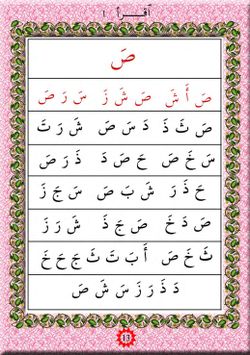 اقرأ ١
صَ
صَ أَ شَ صَ شَ زَ سَ رَ صَ
صَ ثَ ذَ دَ سَ صَ شَ رَ تَ
سَ خَ صَ حَ صَ دَ ذَ رَ صَ
حَ ذَ رَ شَ بَ صَ سَ جَ زَ
صَ دَ خَ صَ جَ ذَ شَ رَ زَ
ثَ خَ صَ أَ بَ تَ ثَ جَ حَ خَ
دَ ذَ رَ زَ سَ شَ صَ
13